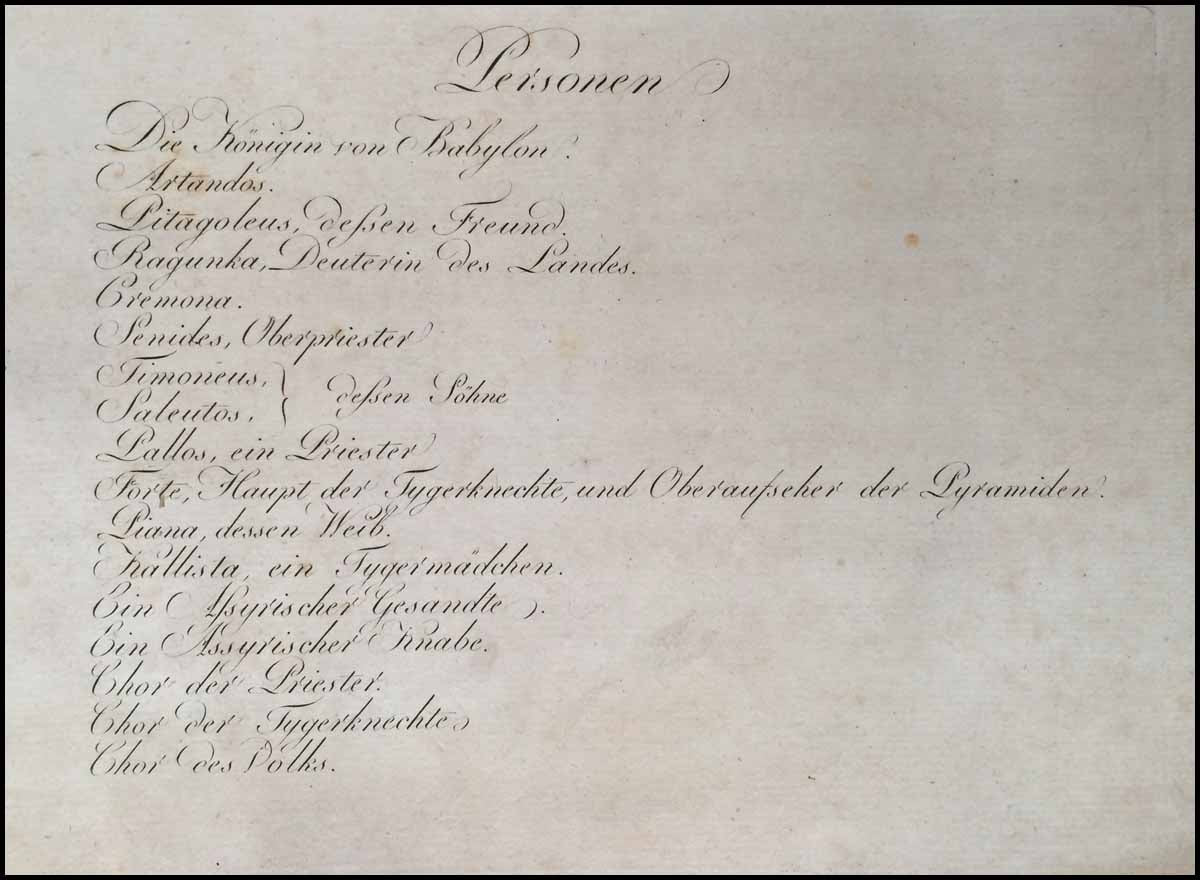 Personen
Die Königin von Babylon.
Artandos.
Pitagoleus, deßen Freund.
Ragunka, Deuterin des Landes.
Cremona.
Senides, Oberpriester
Timoneus,
Saleutos, } deßen Söhne
Pallos, ein Priester
Forte, Haupt der Tygerknechte, und Oberaufseher der Pyramiden.
Piana, dessen Weib.
Kallista, ein Tygermädchen.
Ein Aßyrischer Gesandte.
Ein Assyrischer Knabe.
Chor der Priester.
Chor der Tygerknechte
Chor des Volks.